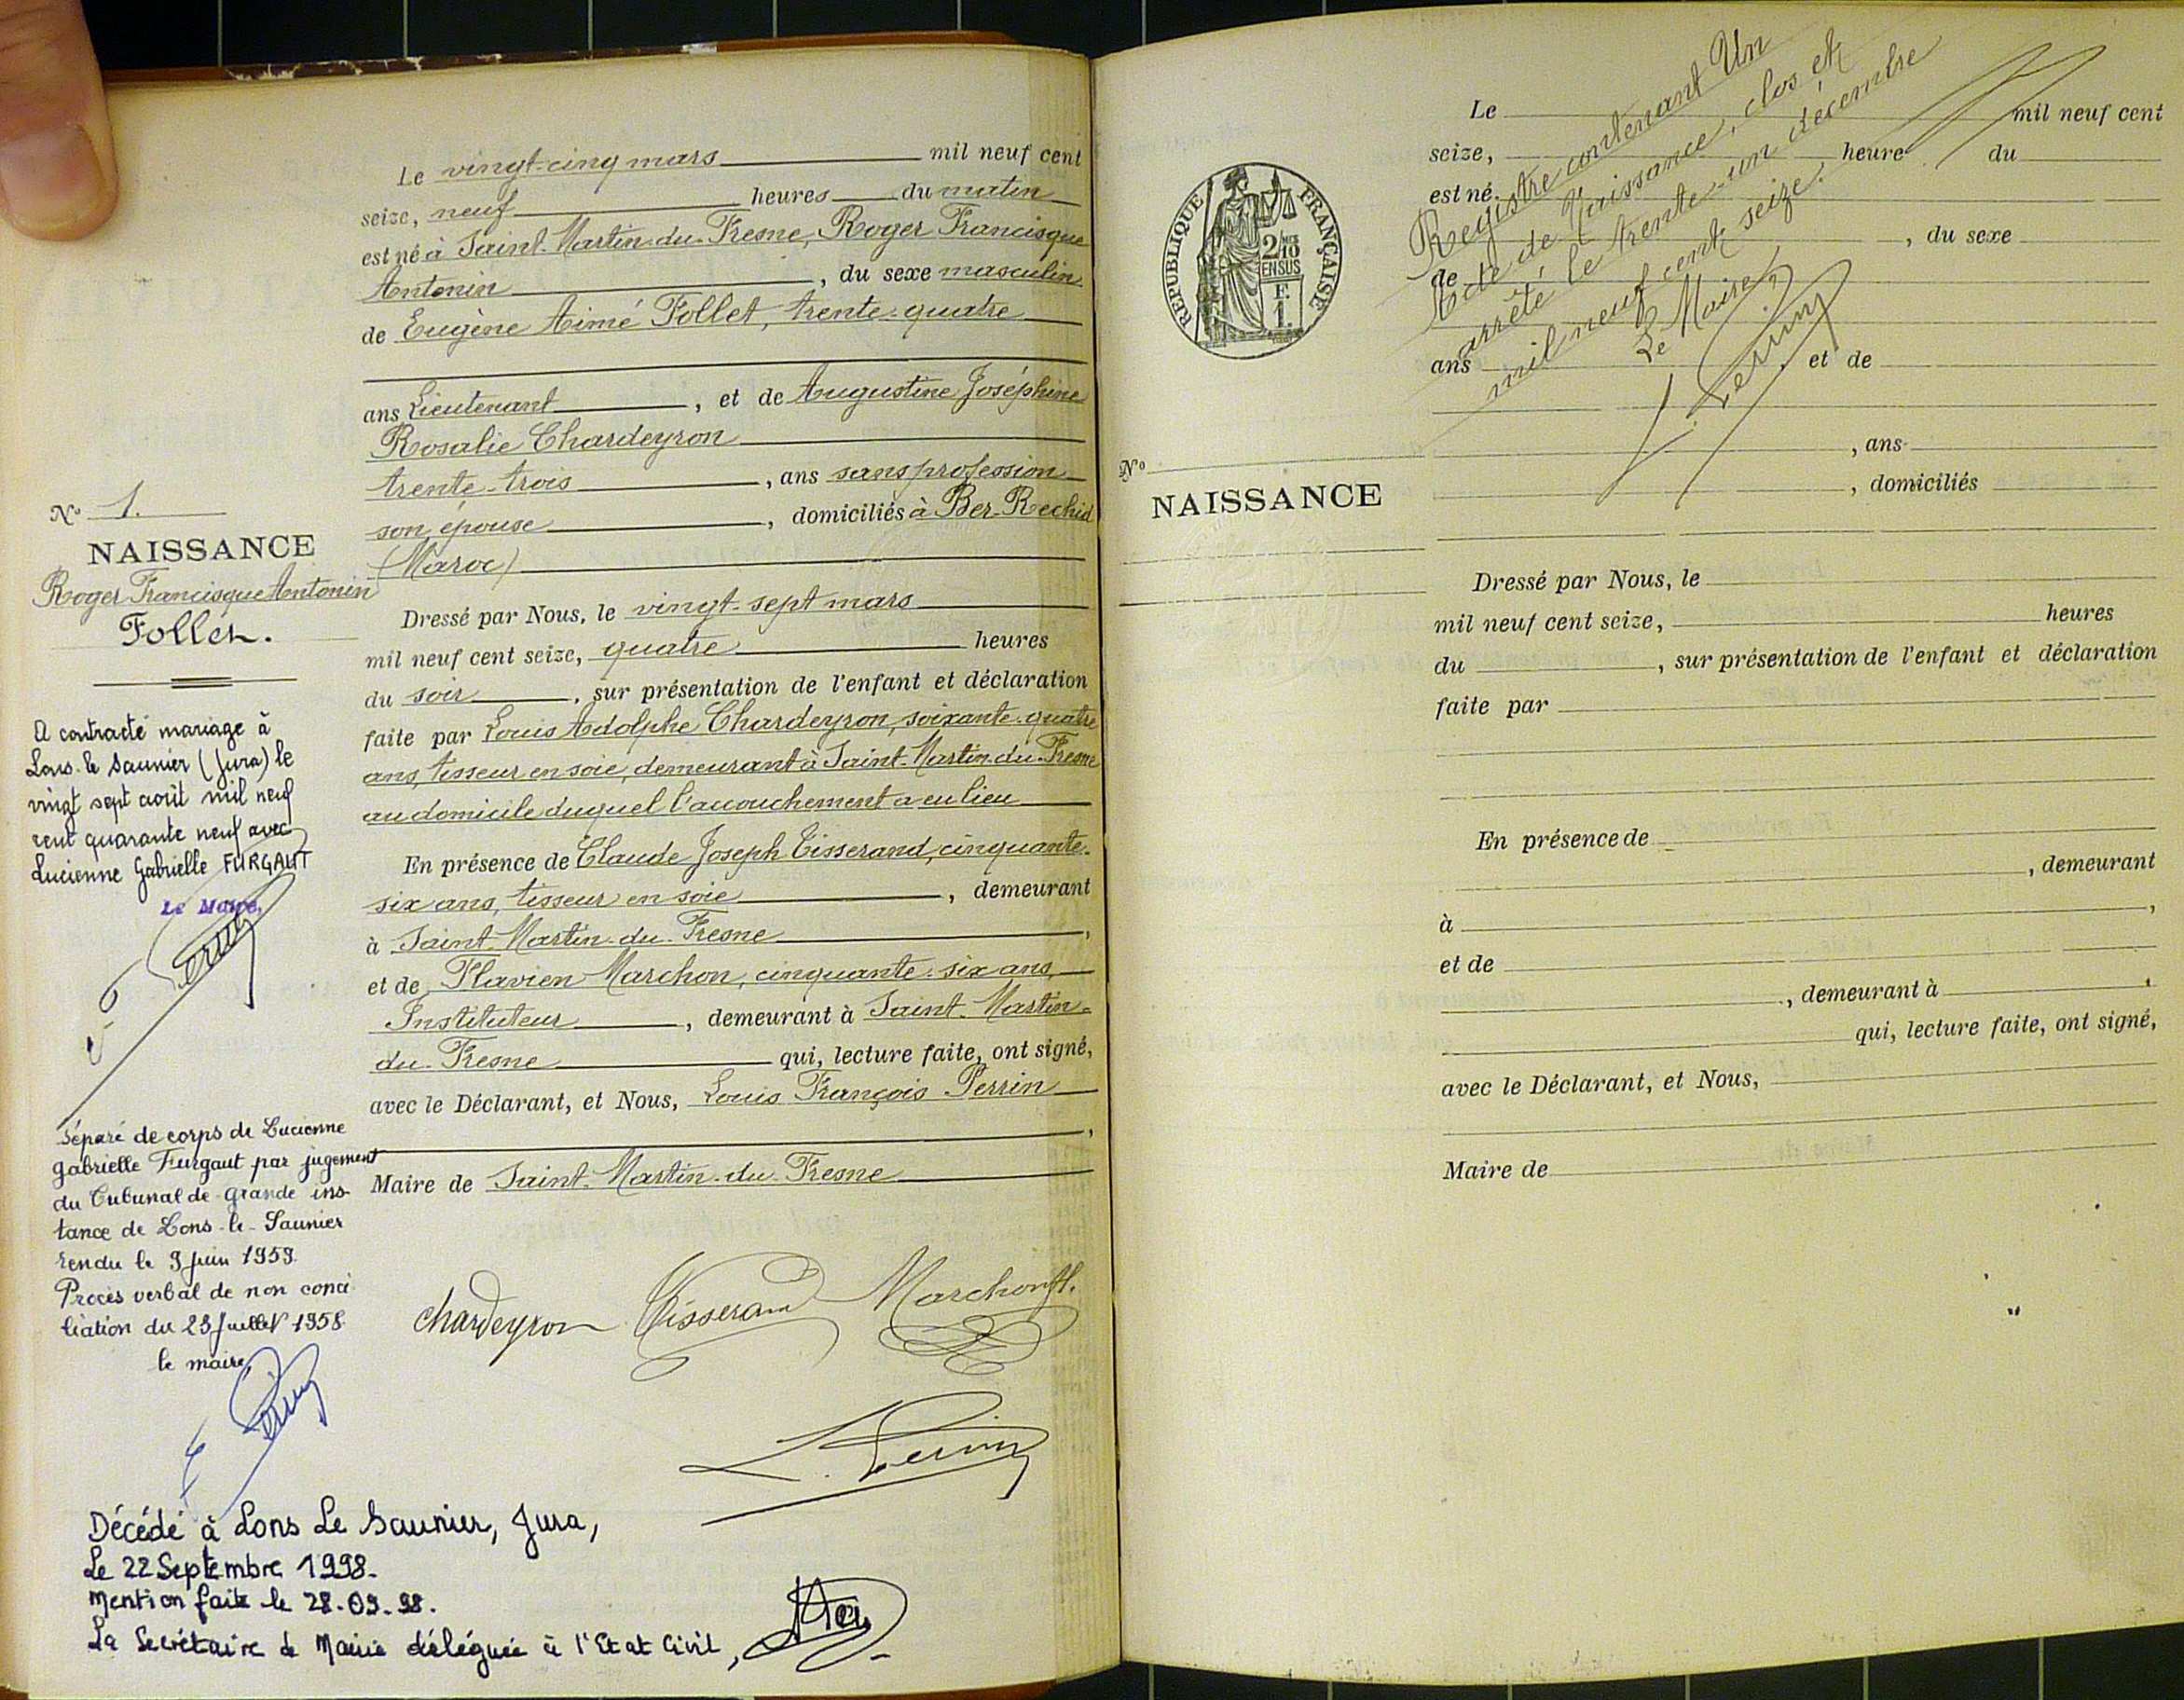 Le vingt-cinq mars mil neuf cent
seize, neuf heures du matin
est né à Saint-Martin-du-Fresne, Roger Francisque
Antonin, du sexe masculin
de Eugène Aimé Follet, trente-quatre
ans Lieutenant, et de Augustine Joséphine
Rosalie Chardeyron
trente-trois, ans sans profession
son épouse, domiciliés à Ber-Rechid
(Maroc)
Dressé par Nous, le vingt-sept mars
mil neuf cent seize, quatre heures
du soir, sur présentation de l'enfant et déclaration
faite par Louis Adolphe Chardeyron, soixante-quatre
ans, tisseur en soie, demeurant à Saint-Martin-du-Fresne
au domicile duquel l'accouchement a eu lieu
En présence de Claude Joseph Tisserand, cinquante-
six ans, tisseur en soie, demeurant
à Saint-Martin-du-Fresne,
et de Flavien Marchon, cinquante-six ans,
Instituteur, demeurant à Saint-Martin-
du-Fresne qui, lecture faite, ont signé,
avec le Déclarant, et Nous, Louis François Perrin
,
Maire de Saint-Martin-du-Fresne
chardeyron Tisserand Marchon fl.
L. Perrin
No 1.
NAISSANCE
Roger Francisque Antonin
Follet.
A contracté mariage à
Lons-le Saunier (Jura) le
vingt sept août mil neuf
cent quarante neuf avec
Lucienne Gabrielle FURGAUT
Le Maire,
Séparé de corps de Lucienne
Gabrielle Furgaut par jugement
du Tribunal de grande ins-
tance de Lons-le-Saunier
rendu le 9 Juin 1959.
Procès verbal de non conci
liation du 23 Juillet 1958
le maire
Décédé à Lons Le Saunier, Jura,
Le 22 Septembre 1998.
Mention faite le 28.09.98.
La Secrétaire de Mairie déléguée à l'Etat Civil,
REPUBLIQUE FRANÇAISE
2/10
EN SUS
F.
1.
No
NAISSANCE
Le mil neuf cent
seize, heure du
est né
, du sexe
de
ans et de
, ans
, domiciliés
Dressé par Nous, le
mil neuf cent seize, heures
du , sur présentation de l'enfant et déclaration
faite par
En présence de
, demeurant
à ,
et de
, demeurant à ,
qui, lecture faite, ont signé,
avec le Déclarant, et Nous,
Maire de
Registre contenant Un
Acte de Naissance, clos et
arrêté le trente-un décembre
mil neuf cent seize.
Le Maire,
L. Perrin